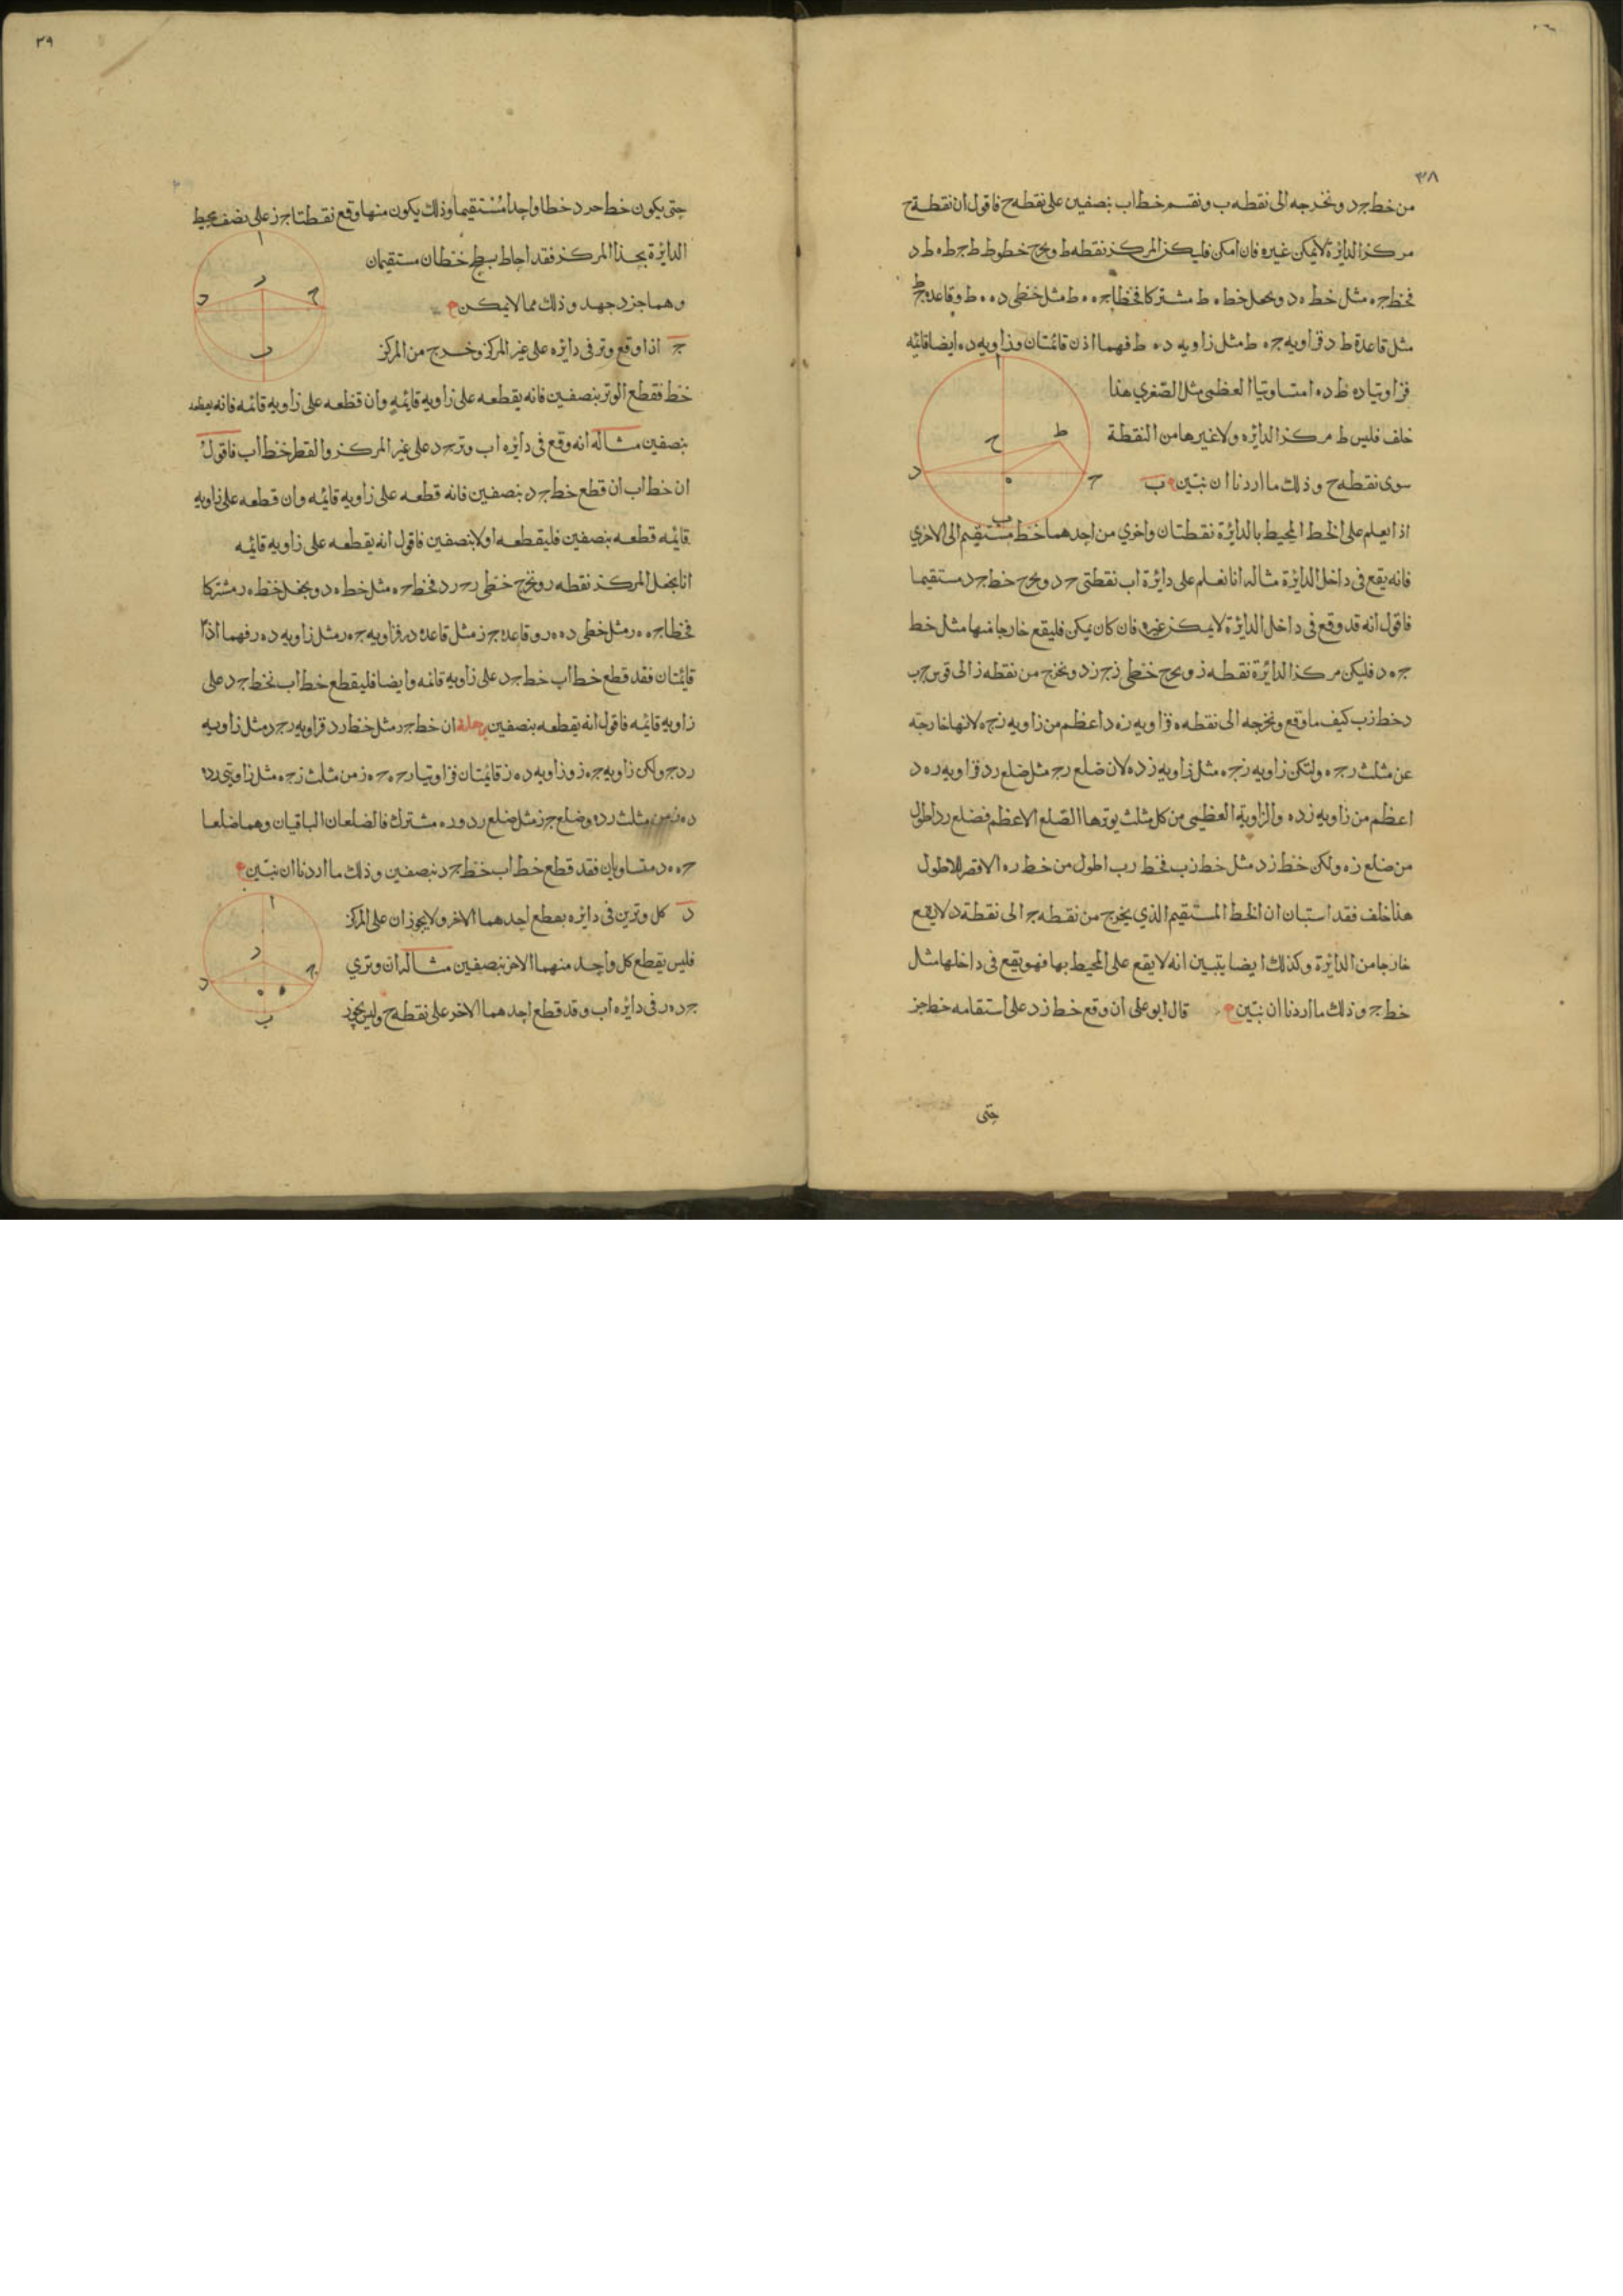 ٣٨
من خط جد ونخرجه الى نقطه ب ونقسم خط اب بنصفين على نقطه ح فاقول ان نقطة ح
مركز الدائرة لا يمكن غيره فان امكن فليكن المركز نقطه ط ونخرج خطوط ط ج ط ه ط د
فخط جه مثل خط ه د ونجعل خط ه ط مشتركا فخطا جه ه ط مثل خطي ده ه ط وقاعدة ج ط
مثل قاعدة ط د فزاويه جه ط مثل زاويه ده ط فهما اذن قائمتان وزاويه ده ا ايضا قائمه
فزاويتا ده ط ده ا متساويتا العظمى مثل الصغري هذا
خلف فليس ط مركز الدائره ولا غيرها من النقطة
سوى نقطه ح وذلك ما اردنا ان نبين ب
اذا تعلم على الخط المحيط بالدائرة نقطتان واخرج من احدهما خط مستقيم الى الاخري
فانه يقع في داخل الدائرة مثاله انا نعلم على دائرة اب نقطتي ج د ونخرج خط ج د مستقيما
فاقول انه قد وقع في داخل الدائرة لا يمكن غيره فان كان يمكن فليقع خارجا منها مثل خط
جه د فليكن مركز الدائرة نقطه ز ونخرج خطي زج زد ونخرج من نقطه ز الى قوس جب
د خط زب كيف ما وقع ونخرجه الى نقطه ه فزاويه زه د اعظم من زاويه زجه لانها خارجة
عن مثلث زجه ولتكن زاويه زجه مثل زاويه زده لان ضلع زج مثل ضلع زد فزاويه زه د
اعظم من زاويه زده والزاوية العظيمى من كل مثلث يوترها الضلع الاعظم فضلع زد اطول
من ضلع زه ولكن خط زد مثل خط زب فخط زب اطول من خط زه الاقصر للاطول
هذا خلف فقد استبان ان الخط المستقيم الذي يخرج من نقطه ج الى نقطة د لا يقع
خارجا من الدائرة وكذلك ايضا يتبين انه لا يقع على المحيط بها فهو يقع في داخلها مثل
خط ج وذلك ما اردنا ان نبين قال ابو على ان وقع خط زد على استقامه خط جز
حتى
ا
ط
ح
د
ج
ه
ب
٣٩
حتى يكون خط جزد خطا واحدا مستقيما وذلك يكون منها وقع نقطتا جز على نصف محيط
الدائرة بحذا المركز فقد احاط بسطح خطان مستقيمان
وهما جزد جهد وذلك مما لا يمكن
ج اذا وقع وتر في دائره على غير المركز وخرج من المركز
خط فقطع الوتر بنصفين فانه يقطعه على زاويه قائمه وان قطعه على زاويه قائمه فانه يقطعه
بنصفين مثاله انه وقع في دائره اب وتر جد على غير المركز والقطر خط اب فاقول
ان خط اب ان قطع خط جد بنصفين فانه قطعه على زاويه قائمه وان قطعه على زاويه
قائمه قطعه بنصفين فليقطعه اولا بنصفين فاقول انه يقطعه على زاويه قائمه
انا نجعل المركز نقطه ز ونخرج خطي زج زد فخط جه مثل خط ه د ونجعل خط ه ز مشتركا
فخطا جه ه ز مثل خطي ده ه ز وقاعدة جز مثل قاعدة دز فزاويه جه ز مثل زاويه ده ز فهما اذا
قائمتان فقد قطع خط اب خط جد على زاويه قائمه وايضا فليقطع خط اب بخط جد على
زاويه قائمه فاقول انه يقطعه بنصفين برهانه ان خط جز مثل خط زد فزاويه زجد مثل زاويه
زدج ولكن زاويه جه ز وزاويه ده ز قائمتان فزاويتا زجه جه ز من مثلث زجه مثل زاويتي زده
ده ز من مثلث زده وضلع جز مثل ضلع زد وزه مشترك فالضلعان الباقيان وهما ضلعا
جه ه د متساويان فقد قطع خط اب خط جد بنصفين وذلك ما اردنا ان نبين
د كل وترين في دائره يقطع احدهما الاخر ولا يجوزان على المركز
فليس يقطع كل واحد منهما الاخر بنصفين مثاله ان وتري
جد ه ز في دائره اب وقد قطع احدهما الاخر على نقطه ح وليس يجوز
ا
ز
ج
د
ب
ا
ز
ج
د
ه
ب